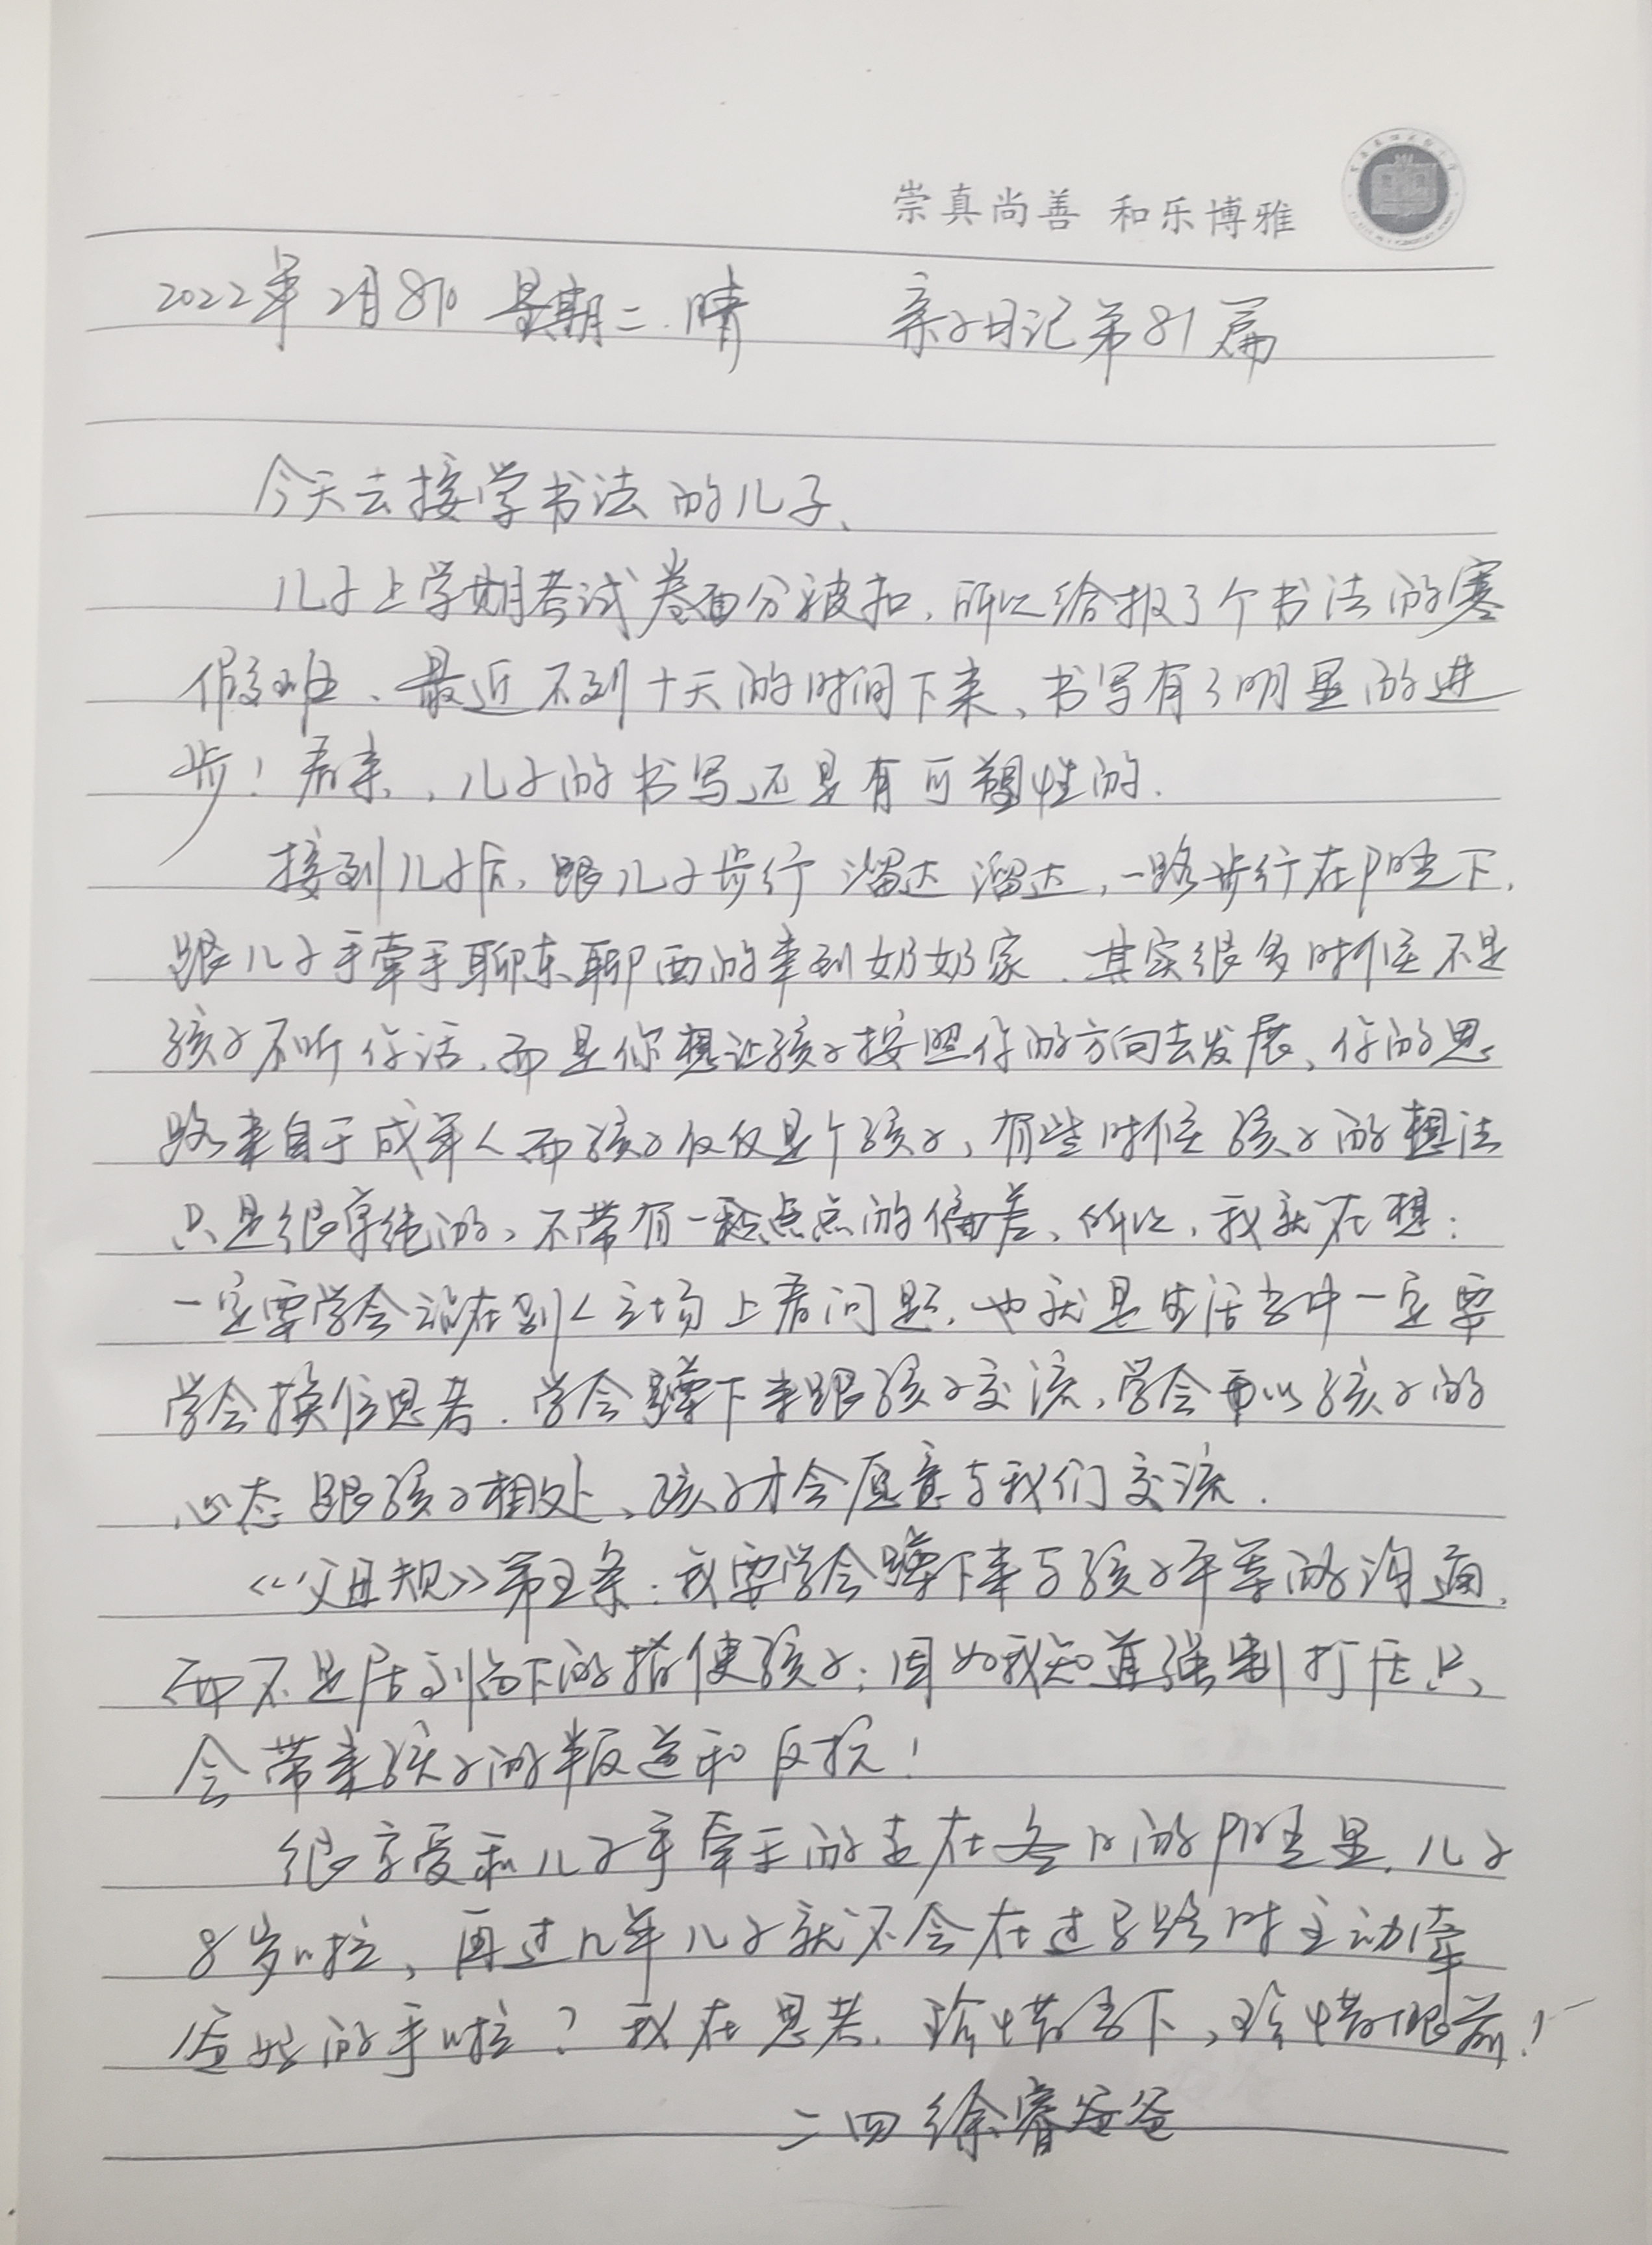 崇真尚善 和乐博雅
2022年2月8日 星期二.晴 亲子日记第81篇
今天去接学书法的儿子、
儿子上学期考试卷面分被扣，所以给报了个书法的寒
假班、最近不到十天的时间下来、书写有了明显的进
步！看来，儿子的书写还是有可塑性的.
接到儿子后，跟儿子步行溜达溜达，一路步行在阳光下，
跟儿子手牵手聊东聊西的来到奶奶家.其实很多时候不是
孩子不听你话，而是你想让孩子按照你的方向去发展、你的思
路来自于成年人而孩子仅仅是个孩子，有些时候孩子的想法
只是很单纯的，不带有一点点的偏差、所以，我就在想：
一定要学会站在别人立场上看问题.也就是生活当中一定要
学会换位思考.学会蹲下来跟孩子交流，学会以孩子的
心态跟孩子相处、孩子才会愿意与我们交流.
《父母规》第五条：我要学会蹲下来与孩子平等的沟通，
而不是居高临下的指使孩子；因为我知道强制打压只
会带来孩子的叛逆和反抗！
很享受和儿子手牵手的走在冬日的阳光里.儿子
8岁啦，再过几年儿子就不会在过马路时主动牵
爸爸的手啦？我在思考.珍惜当下，珍惜眼前！
二四徐睿爸爸